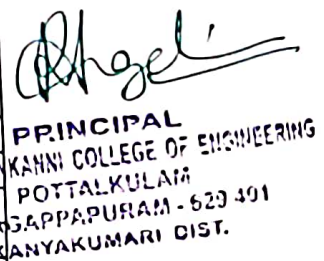 PRINCIPAL
KANNI COLLEGE OF ENGINEERING
POTTALKULAM
GAPPAPURAM - 629 401
KANYAKUMARI DIST.